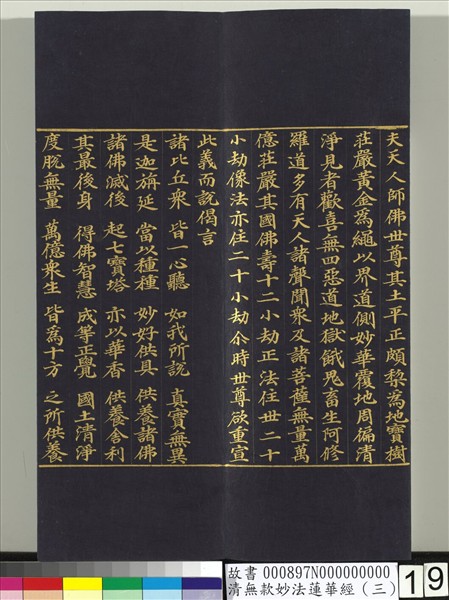 夫天人師佛世尊其土平正頗黎為地寶樹
莊嚴黃金為繩以界道側妙華覆地周徧清
淨見者歡喜無四惡道地獄餓鬼畜生阿修
羅道多有天人諸聲聞衆及諸菩薩無量萬
億莊嚴其國佛壽十二小劫正法住世二十
小劫像法亦住二十小劫尒時世尊欲重宣
此義而說偈言
諸比丘衆 皆一心聽 如我所說 真實無異
是迦旃延 當以種種 妙好供具 供養諸佛
諸佛滅後 起七寶塔 亦以華香 供養舍利
其最後身 得佛智慧 成等正覺 國土清淨
度脫無量 萬億衆生 皆為十方 之所供養
故書 000897N000000000
清無款妙法蓮華經(三)
19